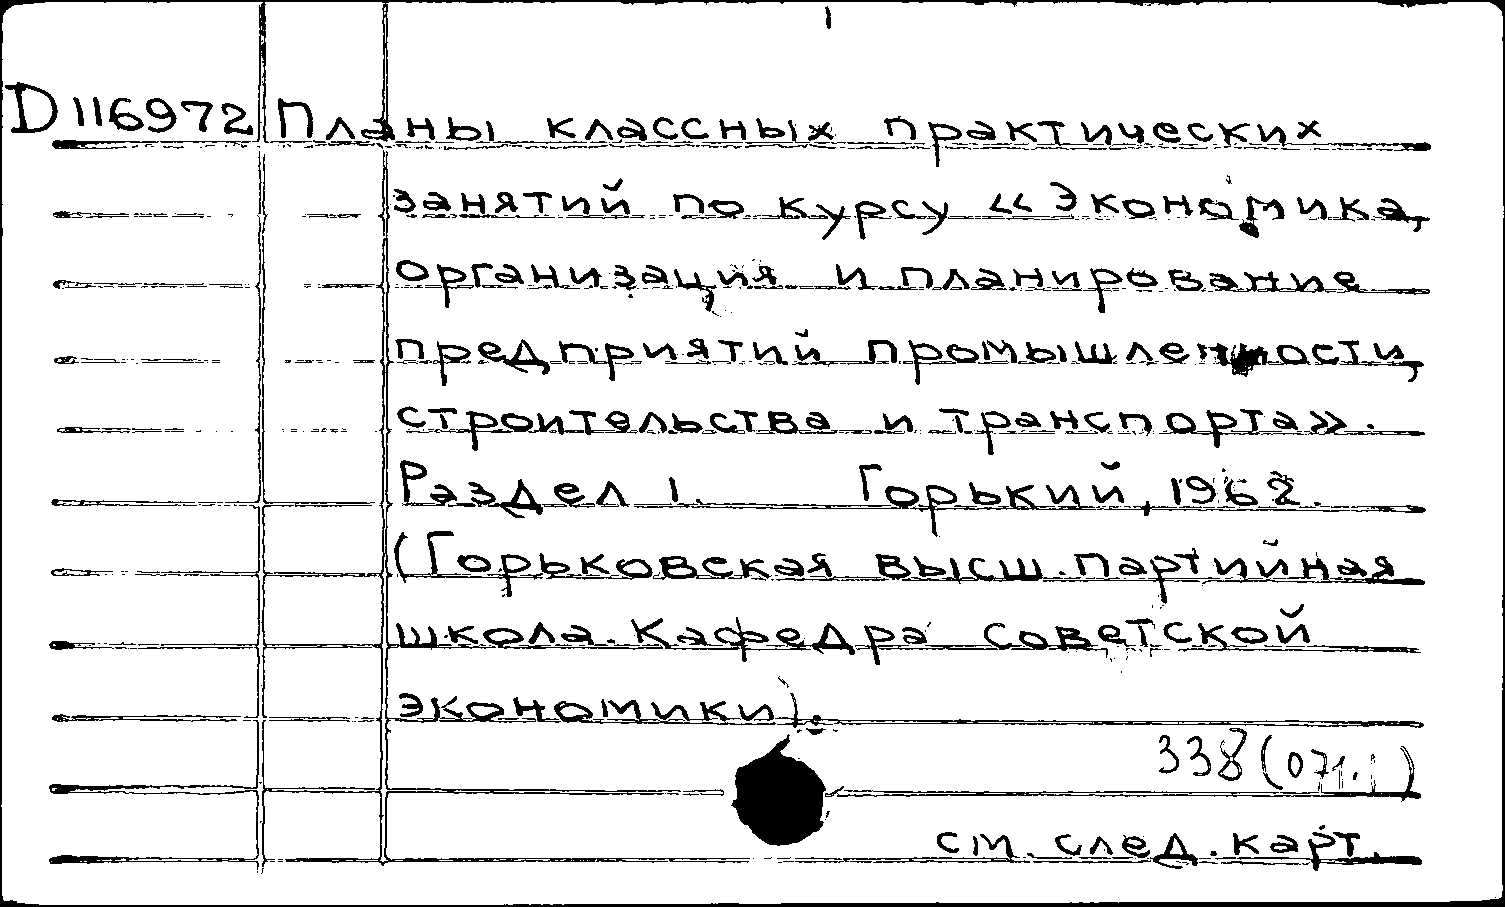 D116972 Планы классных практических
занятий по курсу «Экономика,
организация и планирование
предприятий промышленности,
строительства и транспорта».
Раздел 1. Горький, 1962.
(Горьковская высш. партийная
школа. Кафедра советской
экономики).
338(071.1)
см. след. карт.